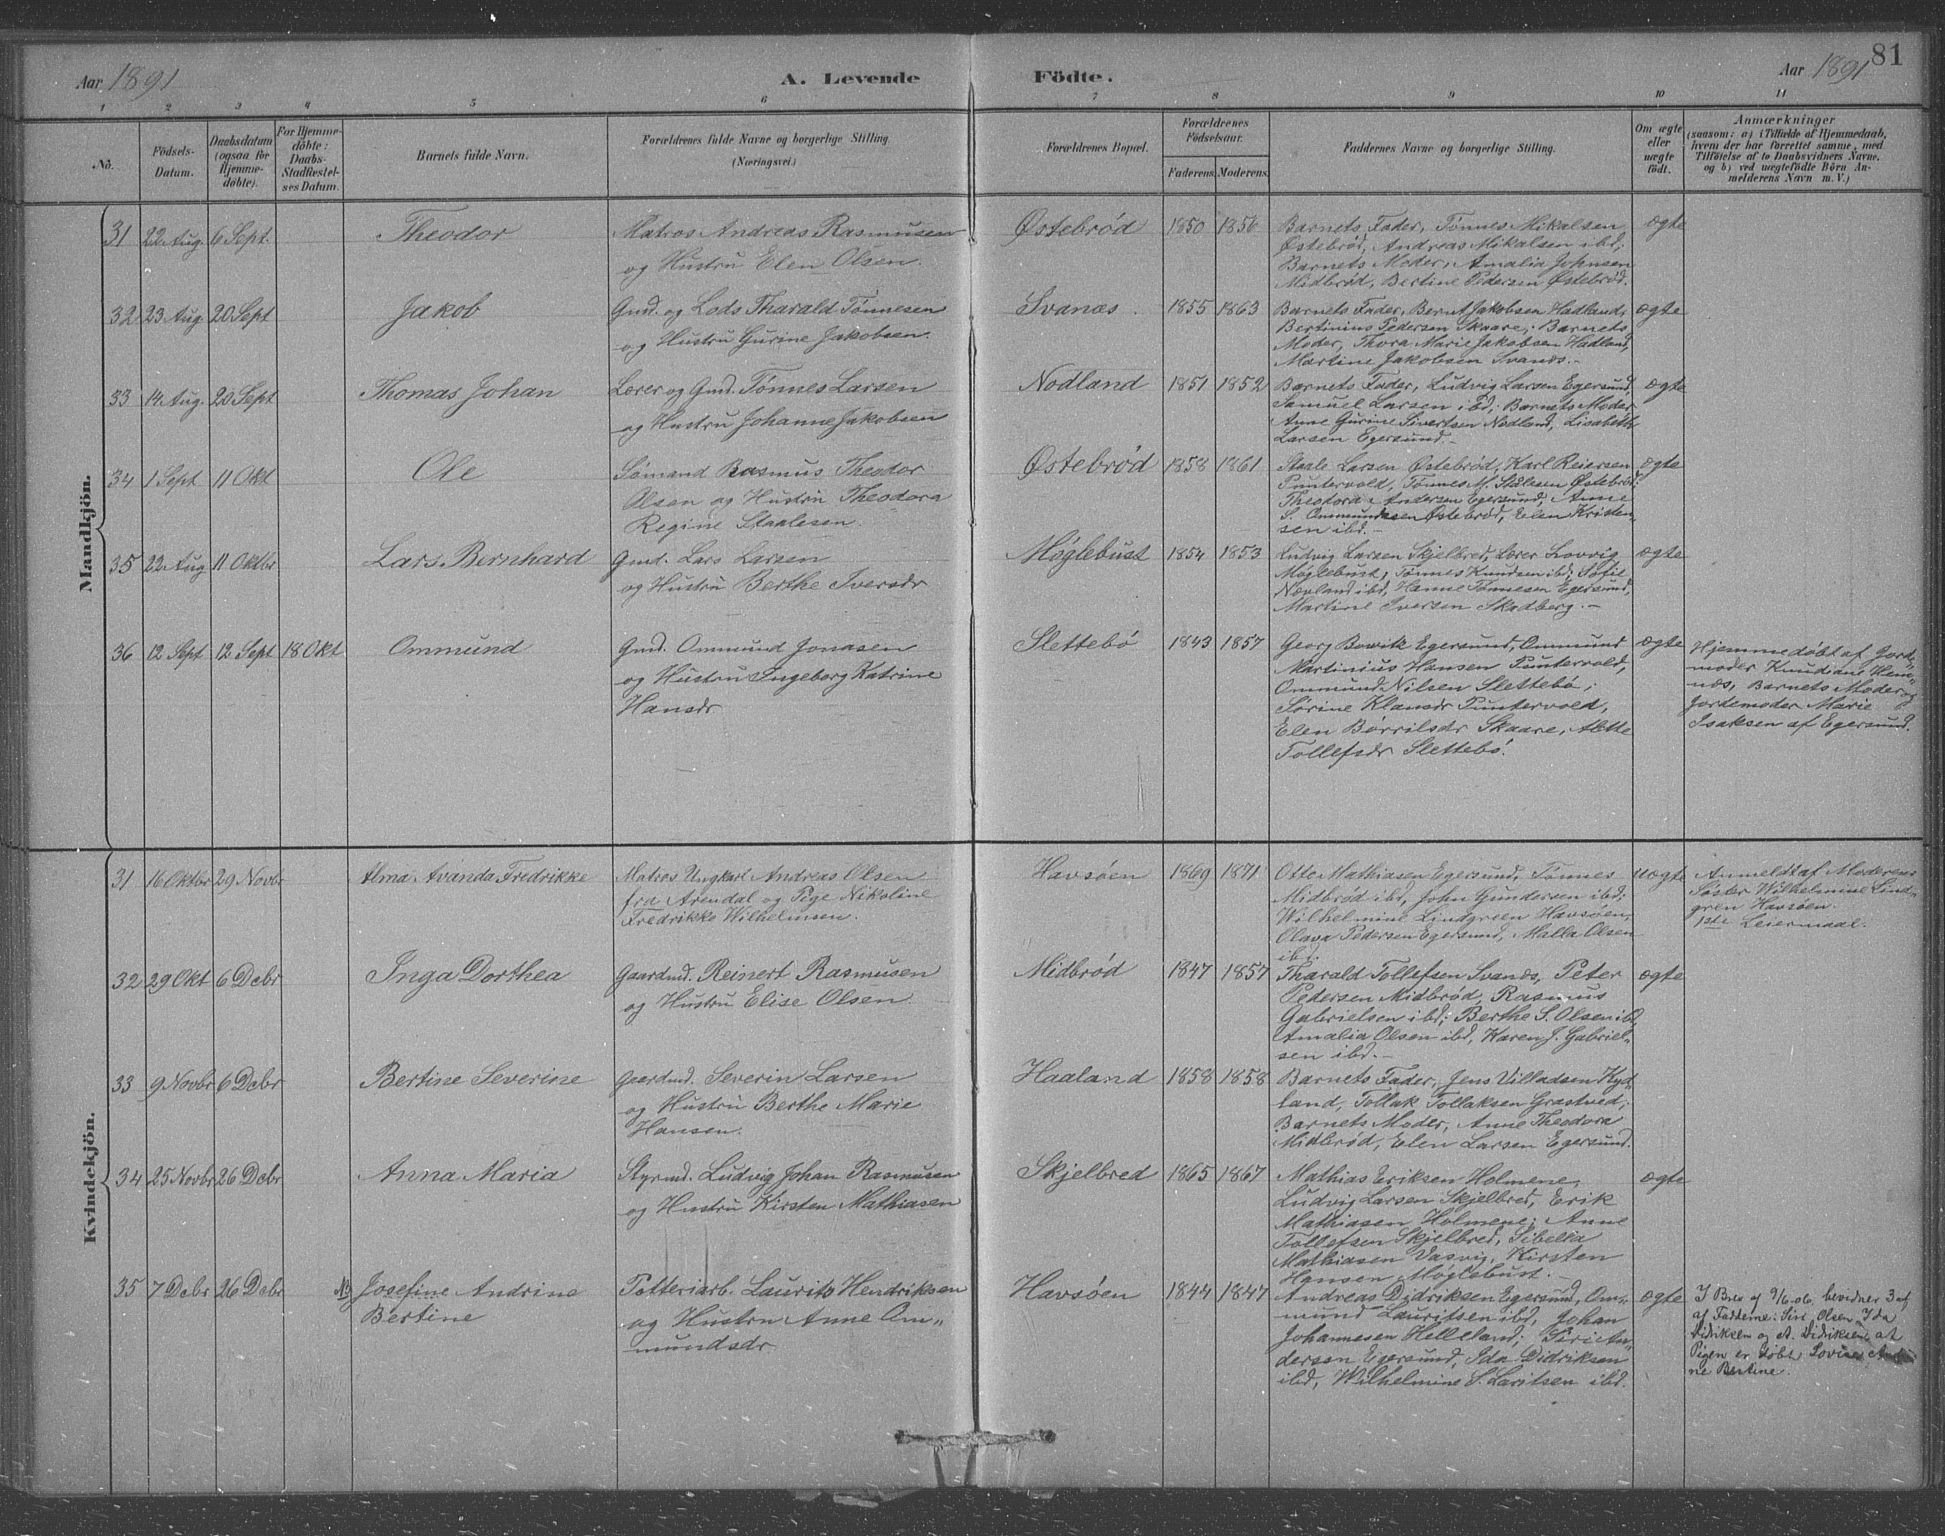 81
Aar 1891 A. Levende Födte. Aar 1891
1 2 3 4 5 6 7 8 9 10 11
No.
Födsels-Datum.
Daabsdatum (ogsaa for Hjemmedöbte).
For Hjemmedöbte: Daabs-Stadfæstelses Datum.
Barnets fulde Navn.
Forældrenes fulde Navne og borgerlige Stilling.
(Næringsvei.)
Forældrenes Bopæl.
Forældrenes Födselsaar.
Faderens. Moderens.
Faddernes Navne og borgerlige Stilling.
Om ægte eller uægte födt.
Anmærkninger
(saasom: a) i Tilfælde af Hjemmedaab,
hvem der har forrettet samme, med
Tilföielse af to Daabsvidners Navne,
og b) ved uægtefödte Börn An-
melderens Navn m. V.)
Mandkjön.
31 22 Aug. 6 Sept. Theodor
Matros Andreas Rasmusen
og Hustru Elen Olsen.
Østebrød 1850 1856
Barnets Fader, Tønnes Mikalsen
Østebrød, Andreas Mikalsen ibd;
Barnets Moder, Amalia Johnsen
Midbrød, Bertine Pedersen Østebrød.
ægte
32 23 Aug 20 Sept Jakob
Gmd. og Lods Tharald Tönnesen
og Hustru Gurine Jakobsen.
Svanæs. 1855 1863
Barnets Fader, Bernt Jakobsen Hadland,
Bertinius Pedersen Skaare; Barnets
Moder, Thora Marie Jakobsen Hadland,
Martine Jakobsen Svanæs.-
ægte
33 14 Aug. 20 Sept Thomas Johan
Lærer og Gmd. Tønnes Larsen
og Hustru Johanne Jakobsen
Nodland 1851 1852
Barnets Fader, Ludvig Larsen Egersund,
Samuel Larsen ibd; Barnets Moder
Anne Gurine Sivertsen Nodland, Lisabeth
Larsen Egersund.-
ægte
34 1 Sept 11 Okt Ole
Sømand Rasmus Theodor
Olsen og Hustru Theodora
Regine Staalesen.
Østebrød 1858 1861
Staale Larsen Østebrød, Karl Reiersen
Puntervold, Tønnes M. Stålesen Østebrød;
Theodora Andersen Egersund, Anne
S. Ommundsen Østebrød, Elen Kristen-
sen ibd.-
ægte
35 22 Aug 11 Oktbr Lars Bernhard
Gmd. Lars Larsen
og Hustru Berthe Iversdr
Møglebust 1854 1853
Ludvig Larsen Skjelbred, Lærer Lovvig
Møglebust, Tønnes Knudsen ibd; Sofie
Nævland ibd, Hanne Tønnesen Egersund,
Martine Iversen Skadberg.-
ægte
36 12 Sept 12 Sept 18 Okt Ommund
Gmd. Ommund Jonasen
og Hustru Ingeborg Katrine
Hansdr
Slettebø 1843 1857
Georg Bowik Egersund, Ommund
Martinius Hansen Puntervold,
Ommund Nilsen Slettebø;
Sørine Klausdr Puntervold,
Elen Børrilsdr Skaare, Alette
Tollefsdr Slettebø.
ægte
Hjemmedøbt af Jord-
moder Knudiane Hem-
næs, Barnets Moder og
Jordemoder Marie
Isaksen af Egersund.
Kvindekjön.
31 16 Oktbr 29 Novbr Alma Avanda Fredrikke
Matros Ungkarl Andreas Olsen
fra Arendal og Pige Nikoline
Fredrikke Wilhelmsen.
Havsöen 1869 1871
Otto Mathiasen Egersund, Tønnes
Midbrød ibd, John Gundersen ibd;
Wilhelmine Lindgreen Havsøen,
Olava Pedersen Egersund, Malla Olsen
ibd.
uægte
Anmeldt af Moderens
Søster Wilhelmine Lind-
gren Havsøen.
1ste Leiermaal.
32 29 Okt 6 Debr Inga Dorthea
Gaardmd. Reinert Rasmusen
og Hustru Elise Olsen.
Midbrød 1847 1857
Tharald Tollefsen Svanæs, Peter
Pedersen Midbrød, Rasmus
Gabrielsen ibd; Berthe S. Olsen ibd,
Amalia Olsen ibd, Karen J. Gabriel-
sen ibd.-
ægte
33 9 Novbr 6 Debr Bertine Severine
Gaardmd. Severin Larsen
og Hustru Berthe Marie
Hansen.
Haaland 1858 1858
Barnets Fader, Jens Villadsen Kyd-
land, Tollak Tollaksen Grastved;
Barnets Moder, Anne Theodora
Midbrød, Elen Larsen Egersund.
34 25 Novbr 26 Debr Anna Maria
Styrmd. Ludvig Johan Rasmusen
og Hustru Kirsten Mathiasen
Skjelbred 1865 1867
Mathias Eriksen Holmene,
Ludvig Larsen Skjelbred, Erik
Mathiasen Holmene; Anne
Tollefsen Skjelbred, Sibella
Mathiasen Vasvig, Kirsten
Hansen Møglebust.-
ægte
35 7 Debr 26 Debr NB Josefine Andrine
Bertine
Potteriarb. Laurits Hendriksen
og Hustru Anne Om-
mundsdr
Havsöen 1844 1847
Andreas Didriksen Egersund, Om-
mund Lauritsen ibd, Johan
Johannesen Helleland; Siri An-
dersen Egersund, Ida Didriksen
ibd, Wilhelmine S. Laritsen ibd.
ægte
I Brev af 9/6-06. bevidner 3 af
af Fadderne: Siri Olsen, Ida
Didriksen og A. Didriksen, at
Pigen er døbt: Lovise Andri-
ne Bertine.